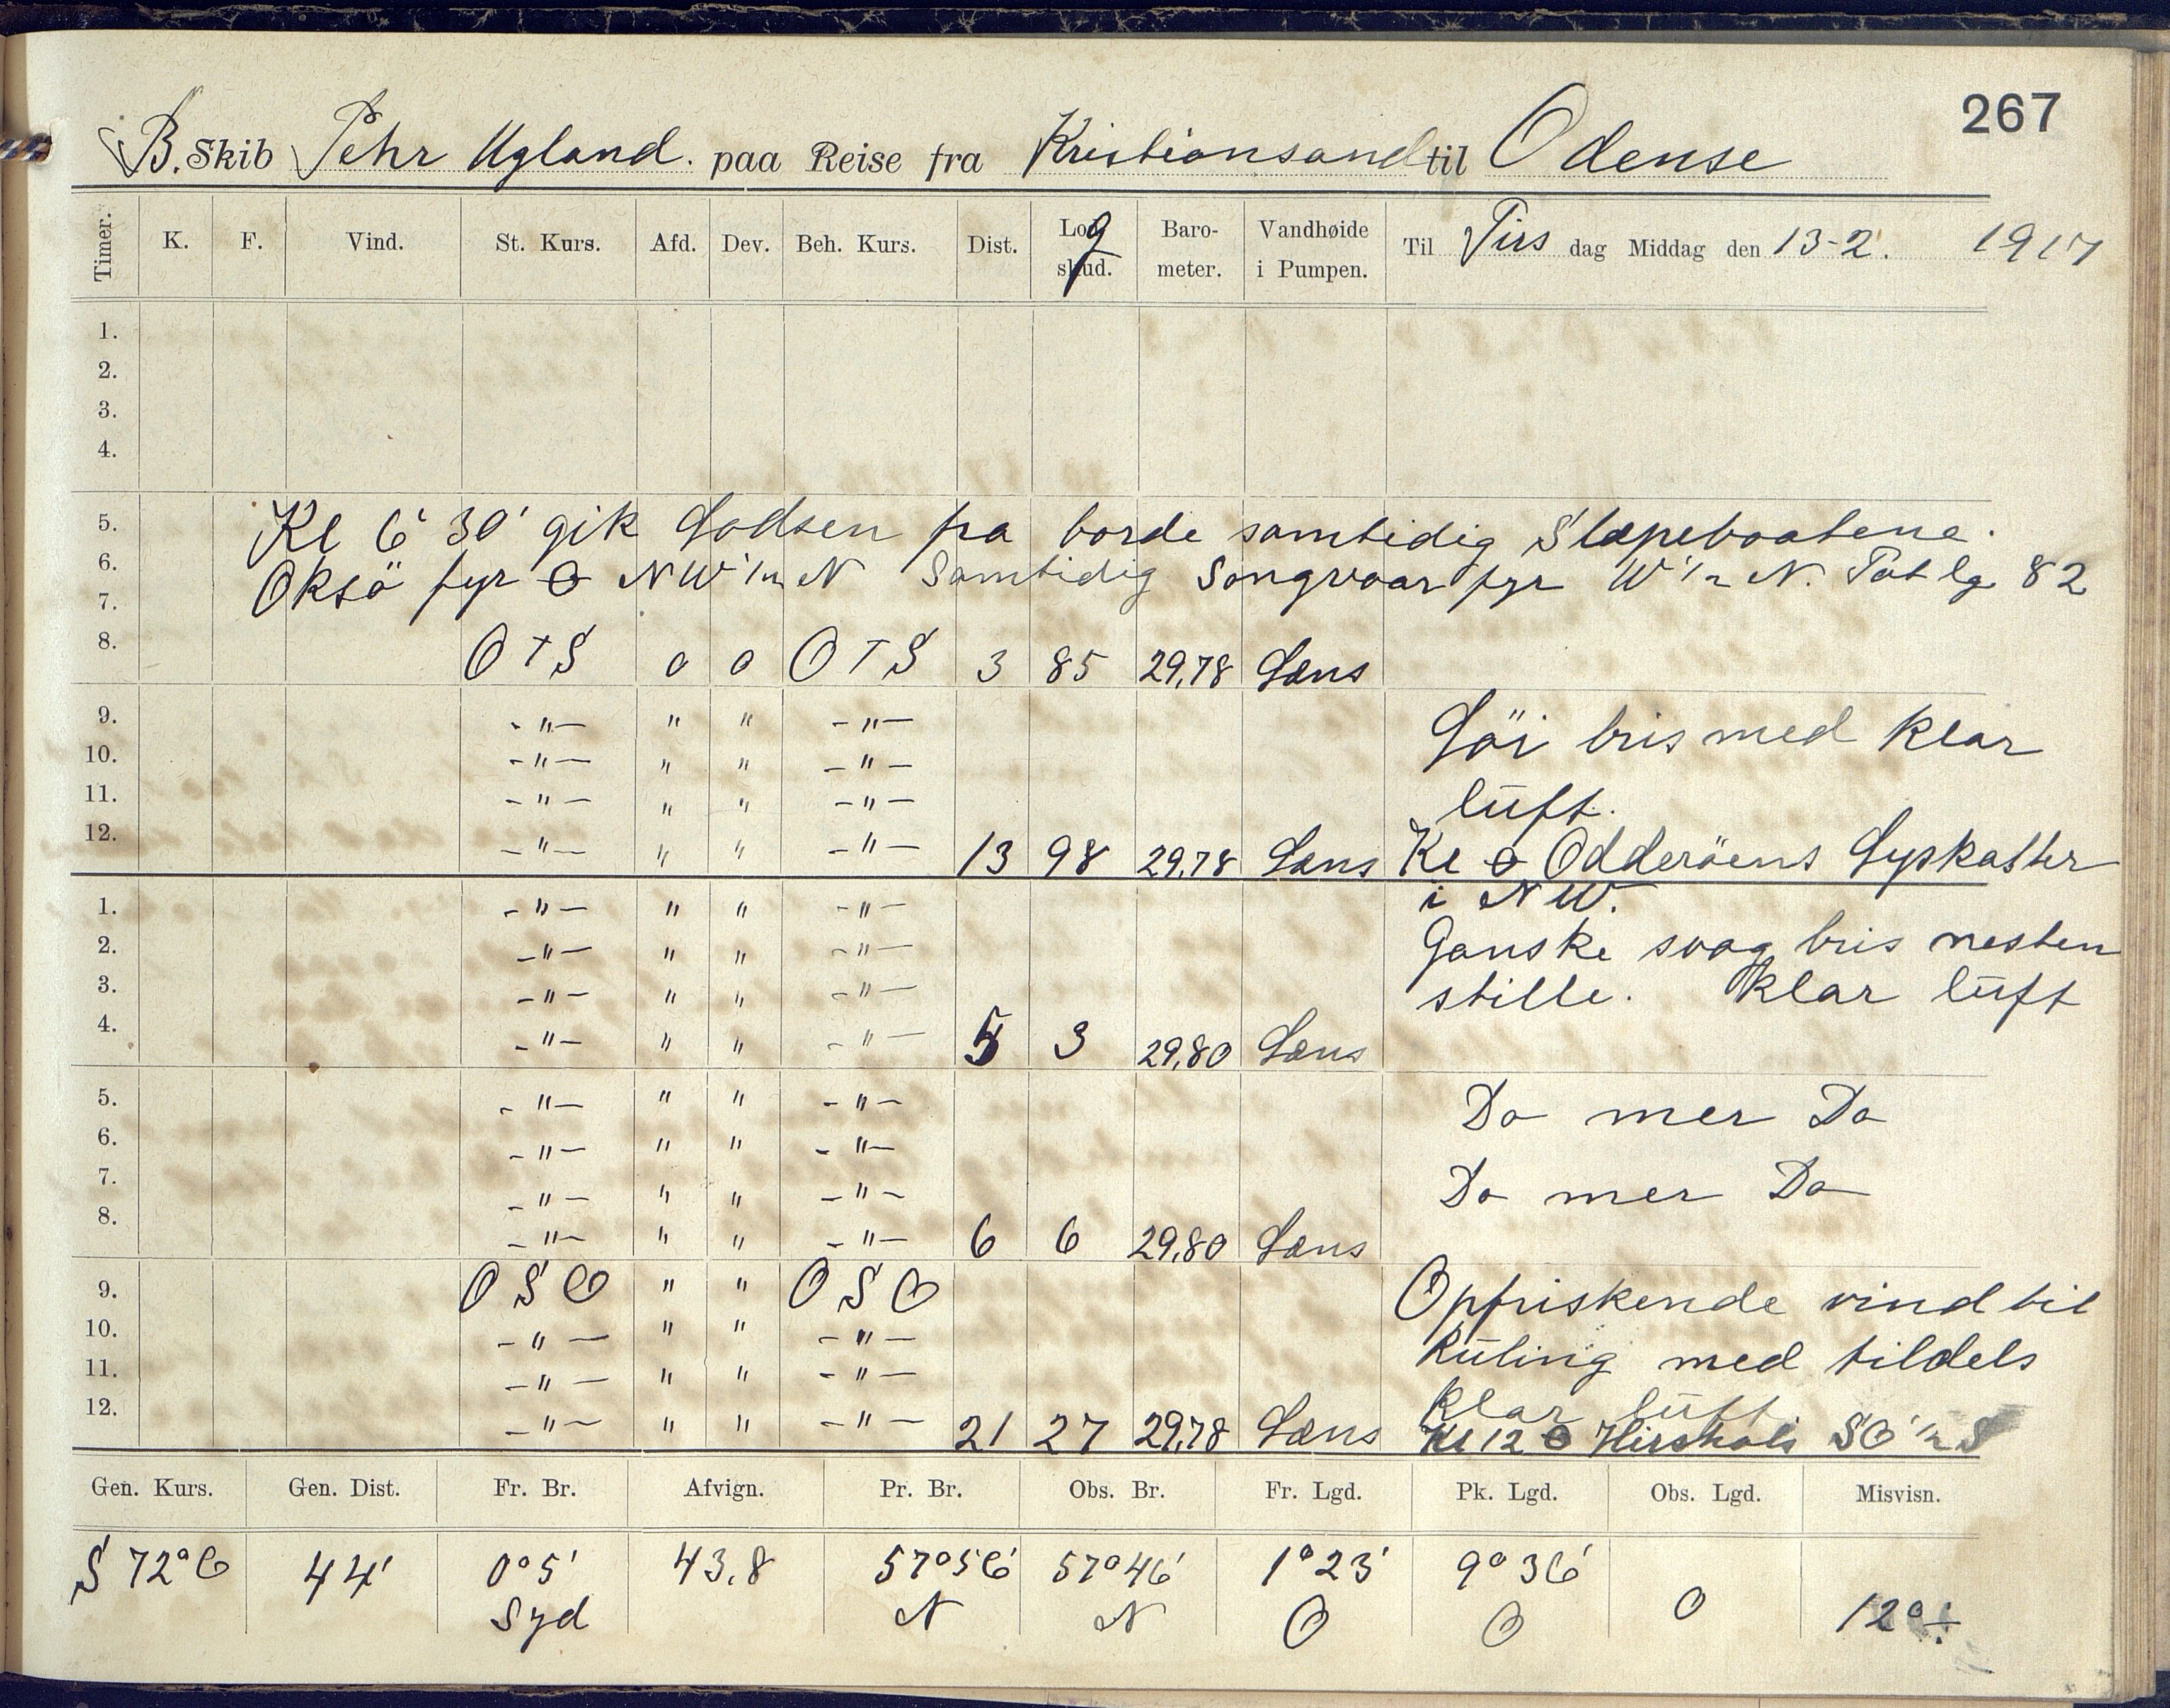 267
B. Skib Pehr Ugland. paa Reise fra Kristiansand til Odense
Timer. K. F. Vind. St. Kurs. Afd. Dev. Beh. Kurs. Dist. Log skud. Baro-meter. Vandhøide i Pumpen. Til Tirs dag Middag den 13-2. 1917
1.
2.
3.
4.
5. Kl 6 30' gik Lodsen fra borde samtidig Slæpebaatene.
6. Oksö fyr NW 1/2 N Samtidig Songvaar fyr W 1/2 N. Pat lg 82
7.
8. O T S 0 0 O T S 3 85 29,78 Læns
9. -"- " " -"- Löi bris med klar
10. -"- " " -"-
11. -"- " " -"- luft.
12. -"- " " -"- 13 98 29,78 Læns Kl Odderöens Lyskaster
i NW.
1. -"- " " -"-
2. -"- " " -"- Ganske svag bris nesten
3. -"- " " -"- stille. Klar luft
4. -"- " " -"- 5 3 29,80 Læns
5. -"- " " -"- Do mer Do
6. -"- " " -"-
7. -"- " " -"- Do mer Do
8. -"- " " -"- 6 6 29,80 Læns
9. O S O " " O S O Opfriskende vind til
10. -"- " " -"- Kuling med tildels
11. -"- " " -"- klar luft
12. -"- " " -"- 21 27 29,78 Læns Kl 12 Hirshals SO 1/2 S
Gen. Kurs. Gen. Dist. Fr. Br. Afvign. Pr. Br. Obs. Br. Fr. Lgd. Pk. Lgd. Obs. Lgd. Misvisn.
S 72° O 44' 0° 5' 43,8 57° 56' 57° 46' 1° 23' 9° 36' O 12° ÷
Syd N N O O